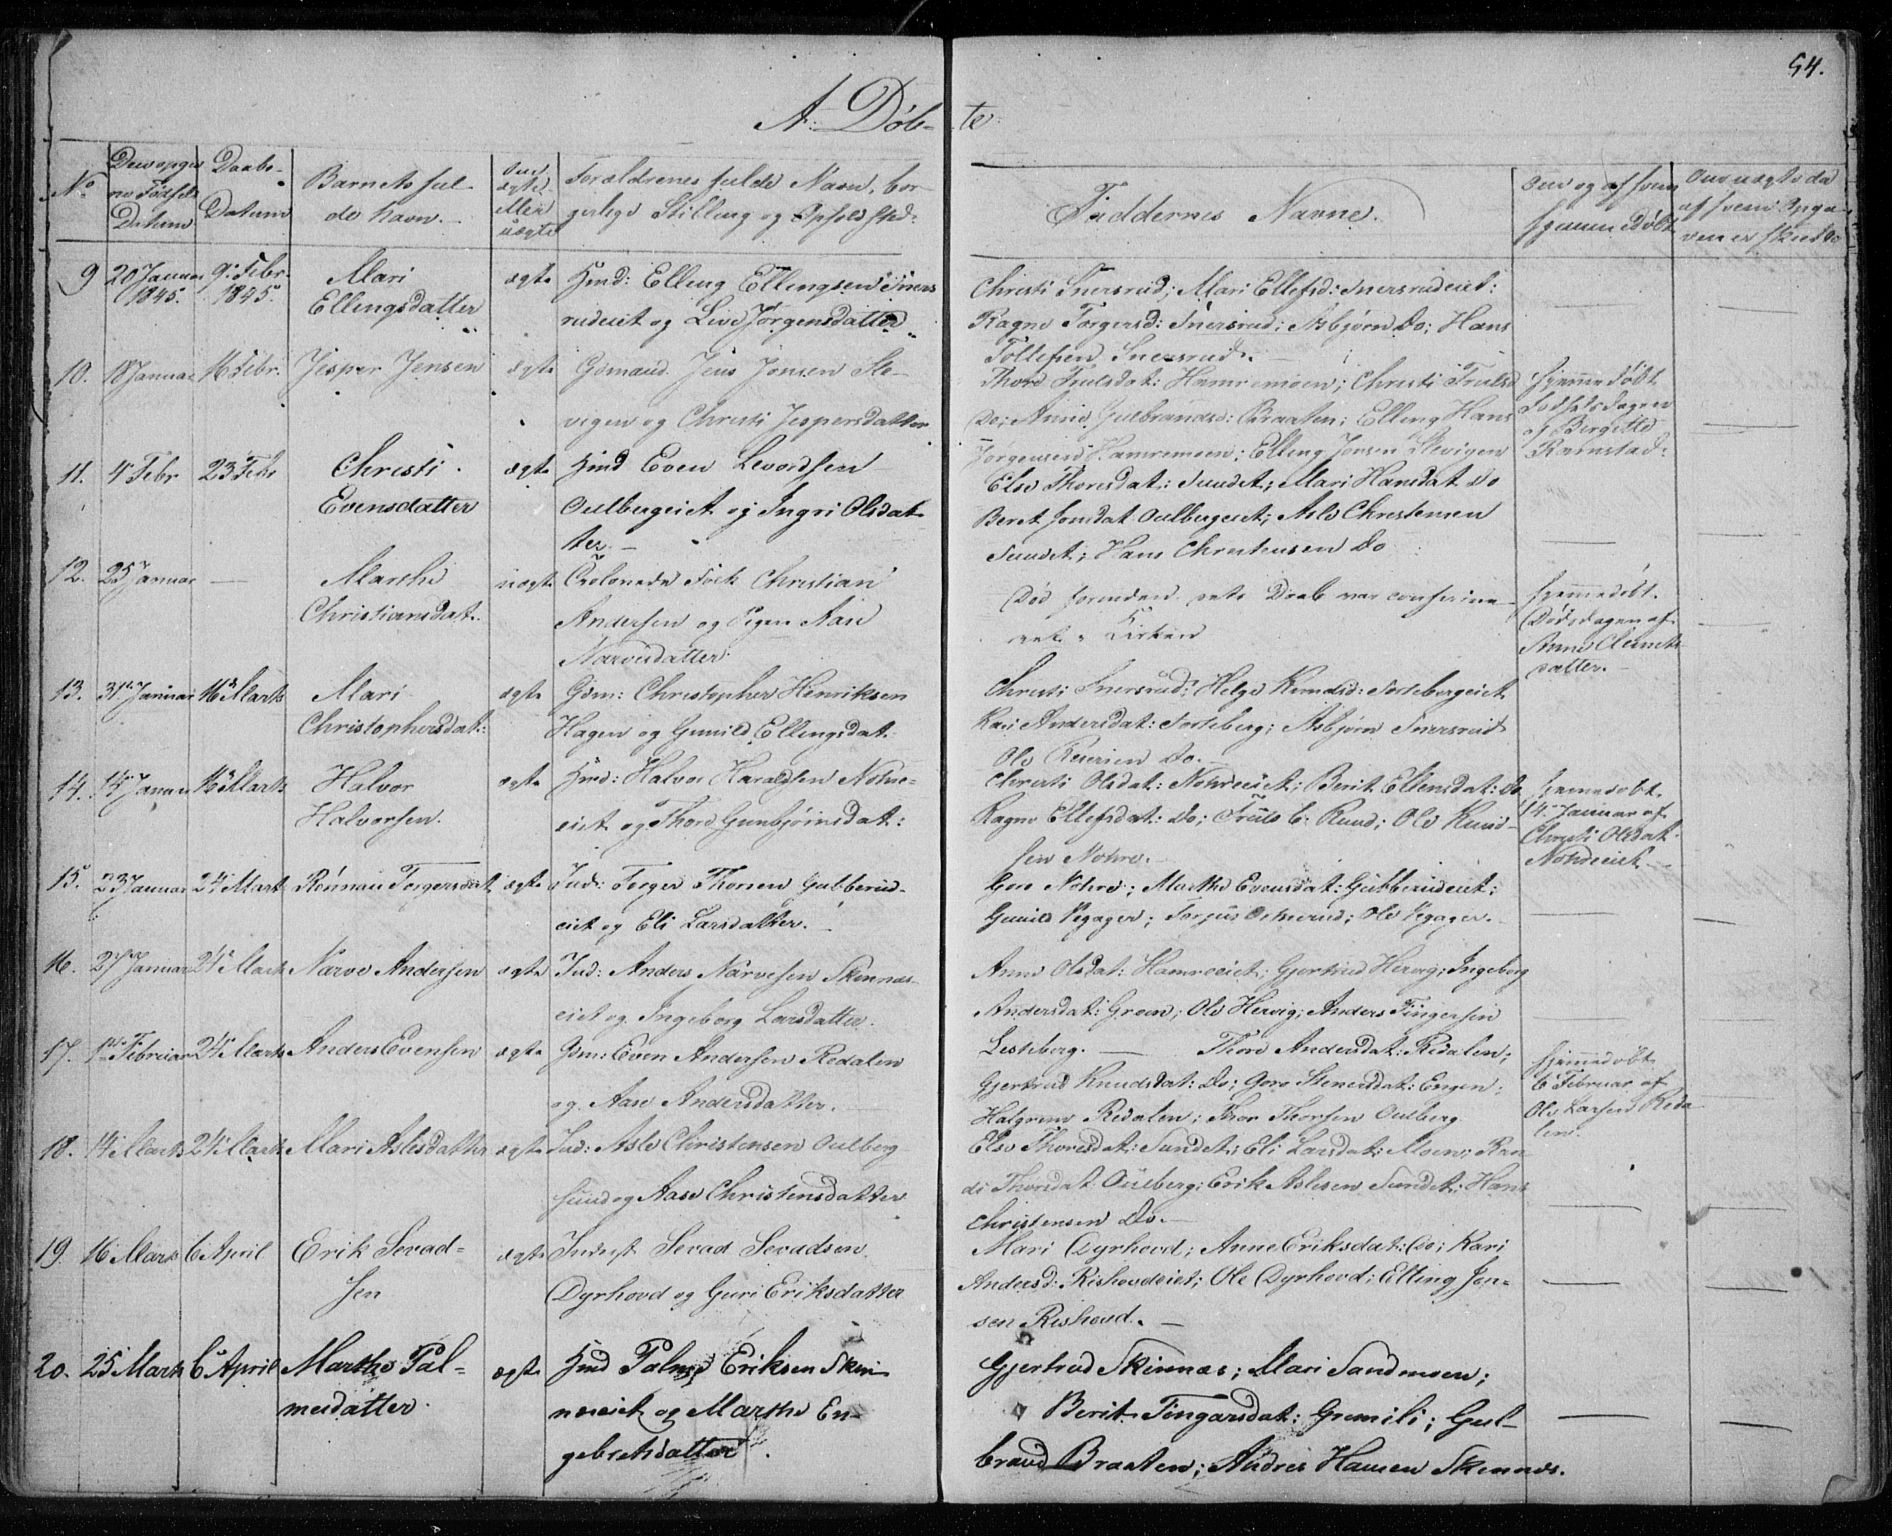 54.
A. Døb- te
No
Den opgivne Fødsels Datum
Daabs- Datum
Barnets fulde Navn.
Om ægte eller uægte
Forældrenes fulde Navn, borgerlige Stilling og Opholdsted:
Faddernes Navne.
Om og af hvem hjemmedøbt
9 20 Januar 1845. 9 Febr. 1845. Mari Ellingsdatter ægte Huusmd: Elling Ellingsen Sners
rudeiet og Live Jørgensdatter
Christi Snersrud; Mari Ellefsd: Snersrudeiet:
Ragne Torgersd: Snersrud; Asbjørn Do; Hans
Tollefsen Snersrud.
10. 18 Januar 16 Febr. Jesper Jensen ægte Gdmand Jens Jonsen Sle-
vigen og Christi Jespersdatter
Thore Trulsdat: Hamremoen; Christi Trulsd
Do; Anne Gulbrandsd: Braaten; Elling Hans
Jørgensend Hamremoen; Elling Jonsen Slevigen
hjemmedøbt
Fødselsdagen
af Birgitte
Ramstad.
11. 4 Febr 23 Febr Christi Evensdatter ægte Hmd Even Levordsen
Oulbergeiet og Ingri Olsdat-
ter.
Else Thoresdat: Sundet; Mari Hansdat Do
Beret Jonsdat Oulbergeiet; Asle Christensen
Sundet; Hans Christensen Do
12. 25 Januar — Marthe Christiansdat. uægte Christian
Andersen og Pigen Aase
Narvesdatter
Død forinden dets Daab var confirme-
ret i Kirken
hjemmedøbt
Dødsdagen af
Anne Clemets
datter.
13. 31 Januar 16 Marts Mari Christophersdat: ægte Gdm: Christopher Henriksen
Hagen og Gunild Ellingsdat.
Christi Snersrud; Helge Knudsd: Sortebergeiet
Kari Andersdat: Sorteberg; Asbjørn Snersrud
Ole Do.
14. 14 Januar 16 Marts Halvor Halvorsen. ægte Hmd: Halvor Haraldsen Nohre-
eiet og Thore Gunbjørnsdat:
Christi Olsdat: Nohreeiet; Berit Ellensdat: Do
Ragne Ellefsdat: Do; Truls E. Ruud; Ole Knud-
sen Nohre.
hjemmedøbt
14 Januar af
Christi Olsdat
Nohreeiet
15. 23 Januar 24 Mart Rønnau Torgersdat ægte Ind: Torger Thorsen Gubberud-
eiet og Eli Larsdatter.
Goro Nohre; Marthe Evensdat: Gubberudeiet;
Gunild Vegager; Torjus Ole Vegager.
16. 27 Januar 24 Marts Narve Andersen ægte Ind: Anders Narvesen Skinnes-
eiet og Ingeborg Larsdatter.
Anne Olsdat: Hamreeiet; Gjertrud Hervig; Ingeborg
Andersdat: Green; Ole Hervig; Anders Fingersen
Lesteberg.
17. 1 Februar 24 Marts Anders Evensen ægte Gdm: Even Andersen Redalen
og Aase Andersdatter.
Thore Andersdat: Redalen;
Gjertrud Knudsdat: Do; Goro Stenersdat: Engen;
Halgrim Redalen; Thor Thorsen Oulberg
hjemmedøbt
6 Februar af
Ole Larsen Reda
len.
18. 14 Marts 24 Marts Mari Aslesdatter ægte Ind: Asle Christensen Oulberg
sund og Aase Christensdatter
Else Thoresdat: Sundet; Eli Larsdat: Moen; Ran-
di Thorsdat: Oulberg; Erik Aslesen Sundet; Hans
Christensen Do.
19. 16 Marts 6 April Erik Sevad-
sen ægte Inderst Sevad Sevadsen
Dyrhovd og Guri Eriksdatter
Mari Dyrhovd; Anne Eriksdat: Do; Kari
Andersd: Rishovdeiet; Ole Dyrhovd; Elling Jon-
sen Rishovd.
20. 25 Marts 6 April Marthe Pal-
mesdatter. ægte Hmd Palme Eriksen Skin-
neseiet og Marthe En-
gebretsdatter.
Gjertrud Skinnes; Mari Sandmoen;
Berit Fingarsdat: Gremili; Gul-
brand Braaten; Andres Hansen Skinnes.